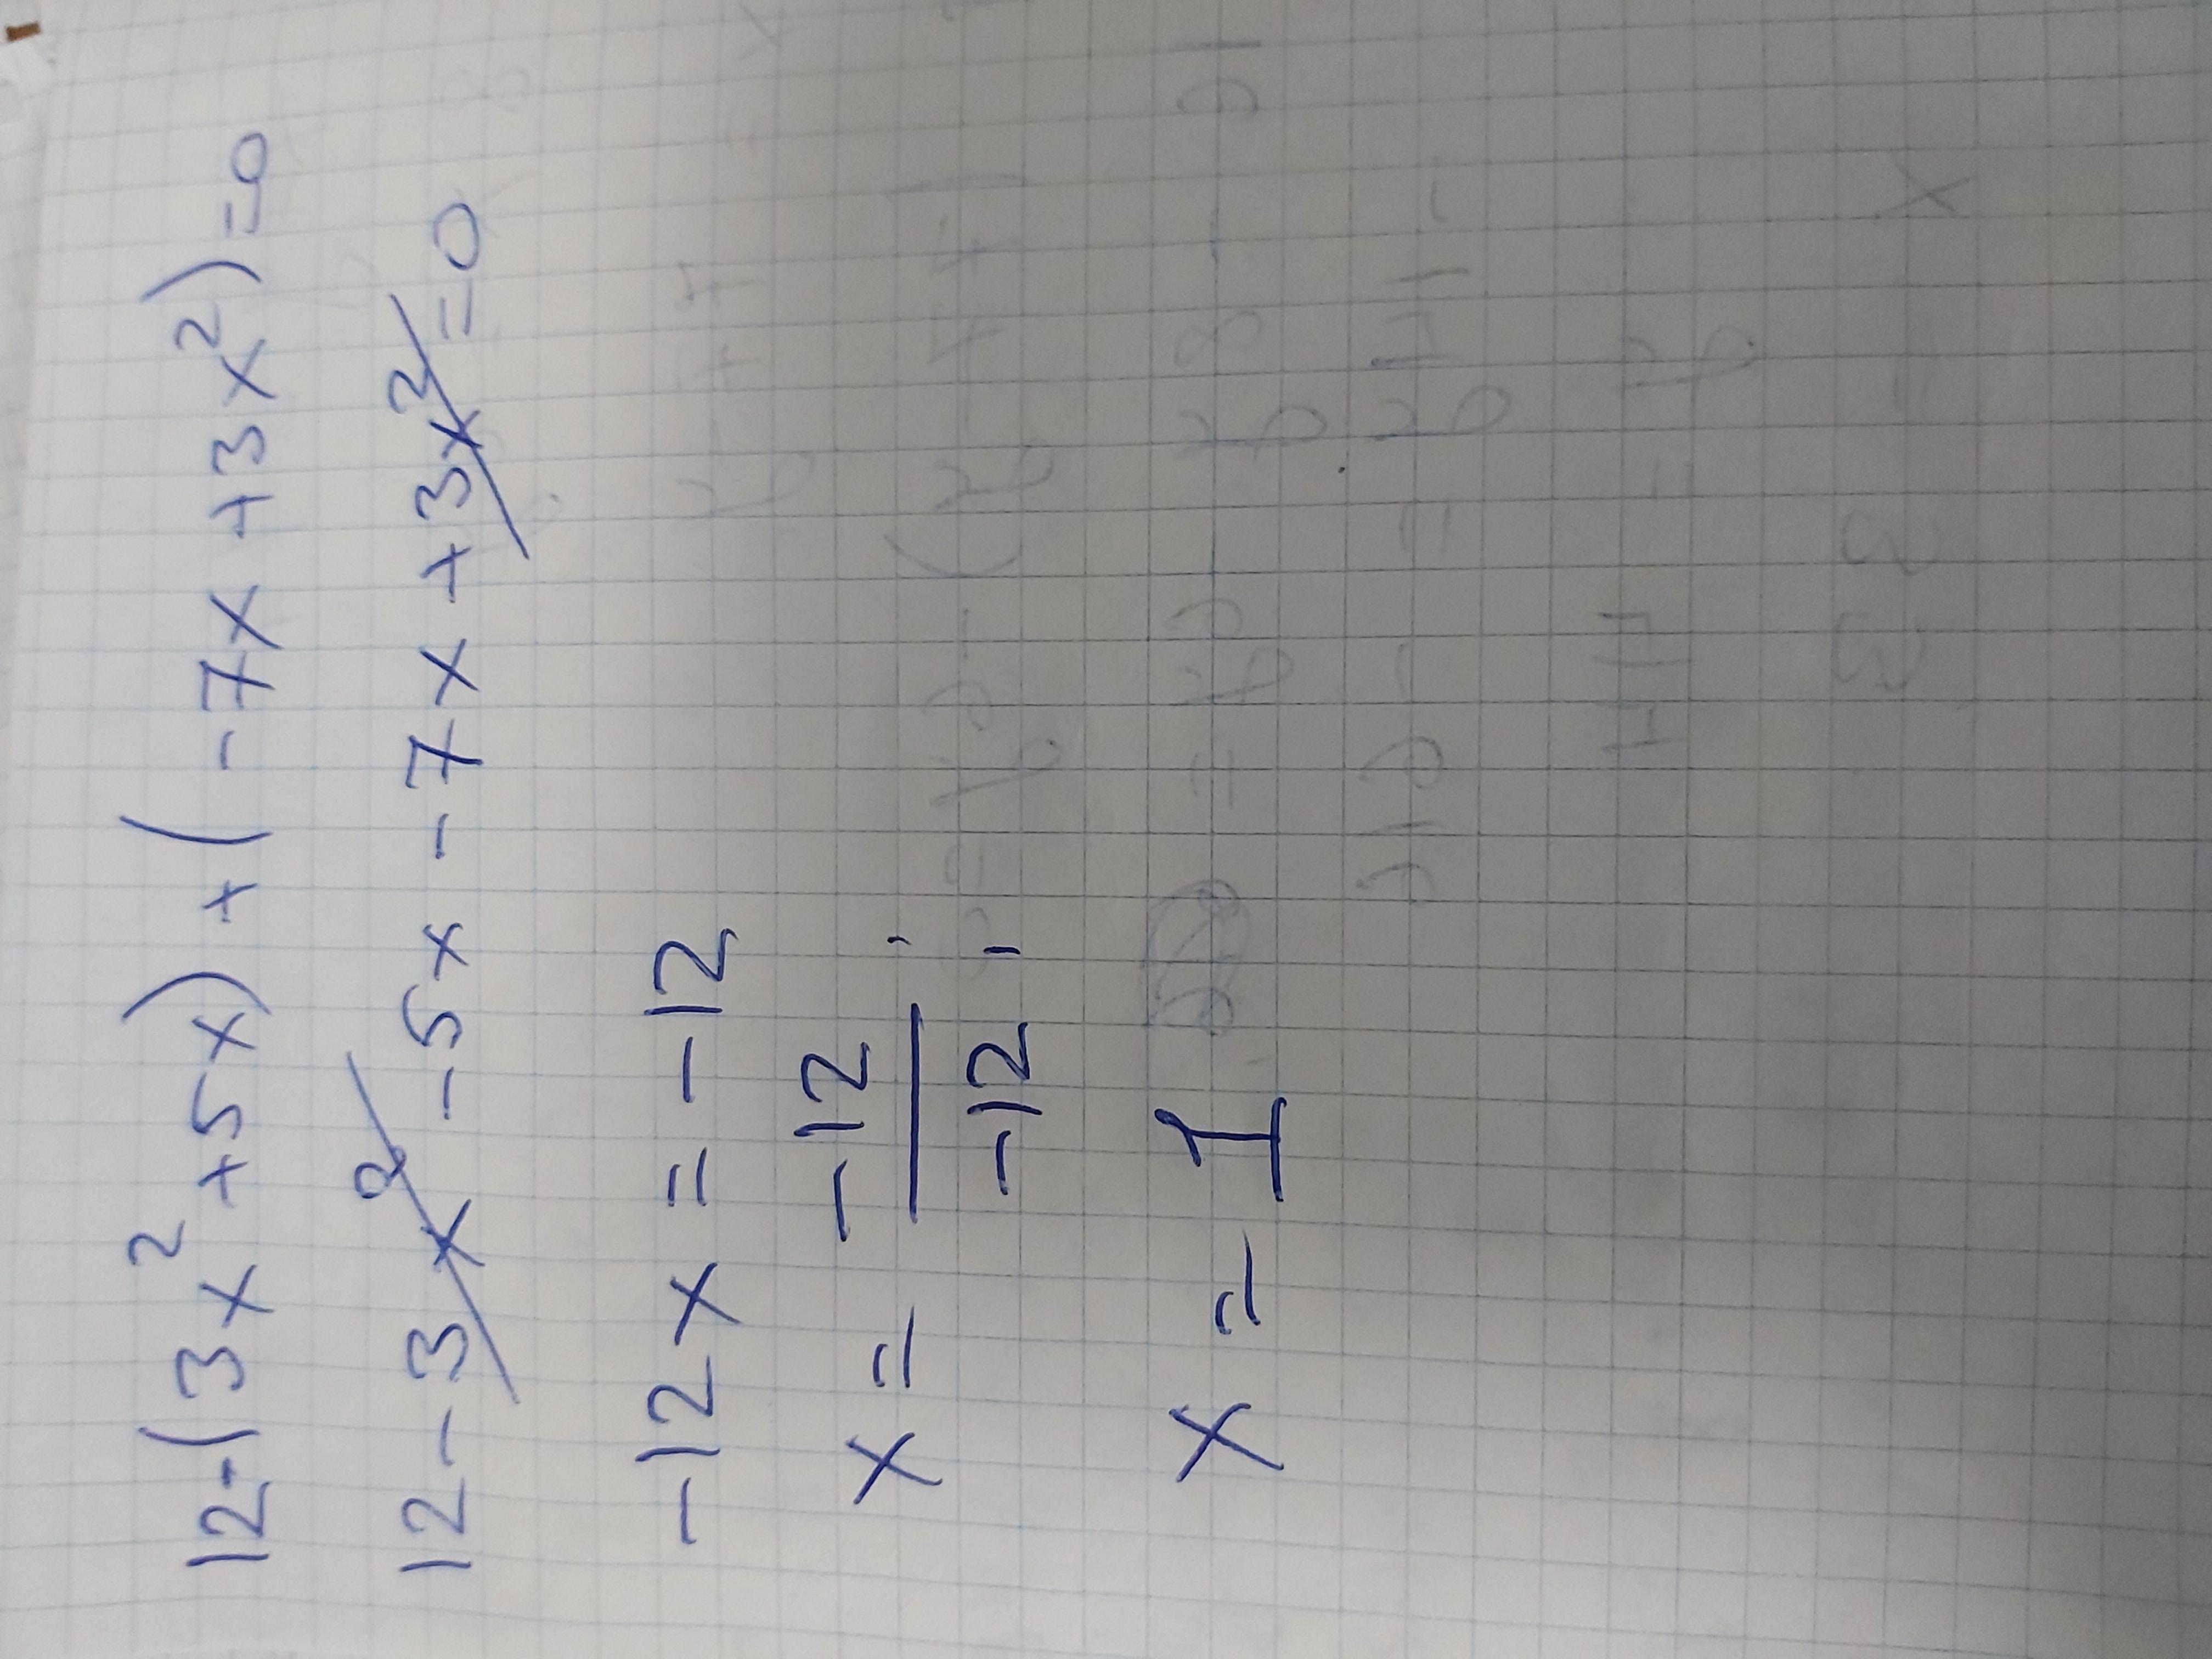 12-(3x²+5x)+(-7x+3x²)=0
12-3x²-5x-7x+3x²=0
-12x=-12
x=-12/-12
x=1